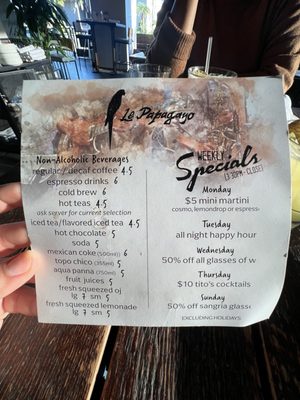 Le Papagayo
Non-Alcoholic Beverages
regular/decaf coffee 4.5
espresso drinks 6
cold brew 6
hot teas 4.5
ask server for current selection
iced tea/flavored iced tea 4.5
hot chocolate 5
soda 5
mexican coke (500ml) 6
topo chico (355ml) 5
aqua panna (750ml) 5
fruit juices 5
fresh squeezed oj
lg 7 sm 5
fresh squeezed lemonade
lg 7 sm 5
WEEKLY
Specials
(3:30PM-CLOSE)
Monday
$5 mini martini
cosmo, lemondrop or espress
Tuesday
all night happy hour
Wednesday
50% off all glasses of w
Thursday
$10 tito's cocktails
Sunday
50% off sangria glass
EXCLUDING HOLIDAYS